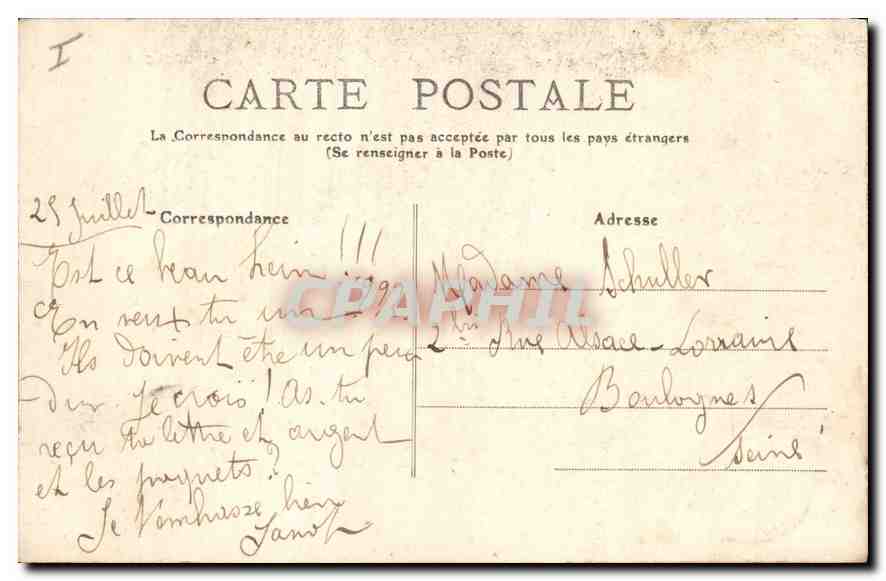 I
CARTE POSTALE
La Correspondance au recto n'est pas acceptée par tous les pays étrangers
(Se renseigner à la Poste)
25 Juillet
Correspondance
Est ce beau hein !!!
En veux tu un
Ils doivent être un peu
dur je crois ! As-tu
reçu ta lettre et argent
et les paquets ?
Je t'embrasse bien
Adresse
Madame Schuller
2 bis Rue Alsace-Lorraine
Boulogne s/
Seine
CPAPHIL